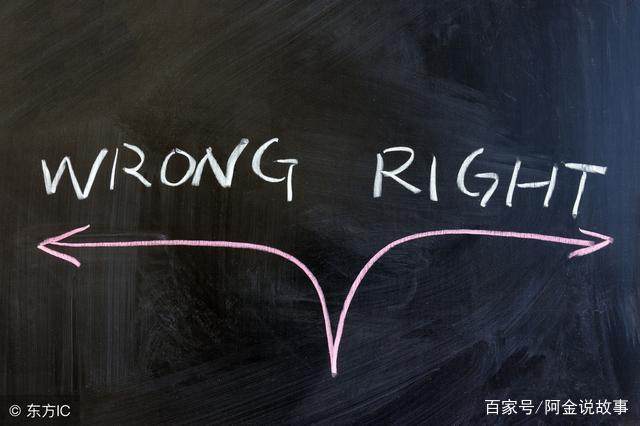 WRONG RIGHT
© 东方IC
百家号/阿金说故事